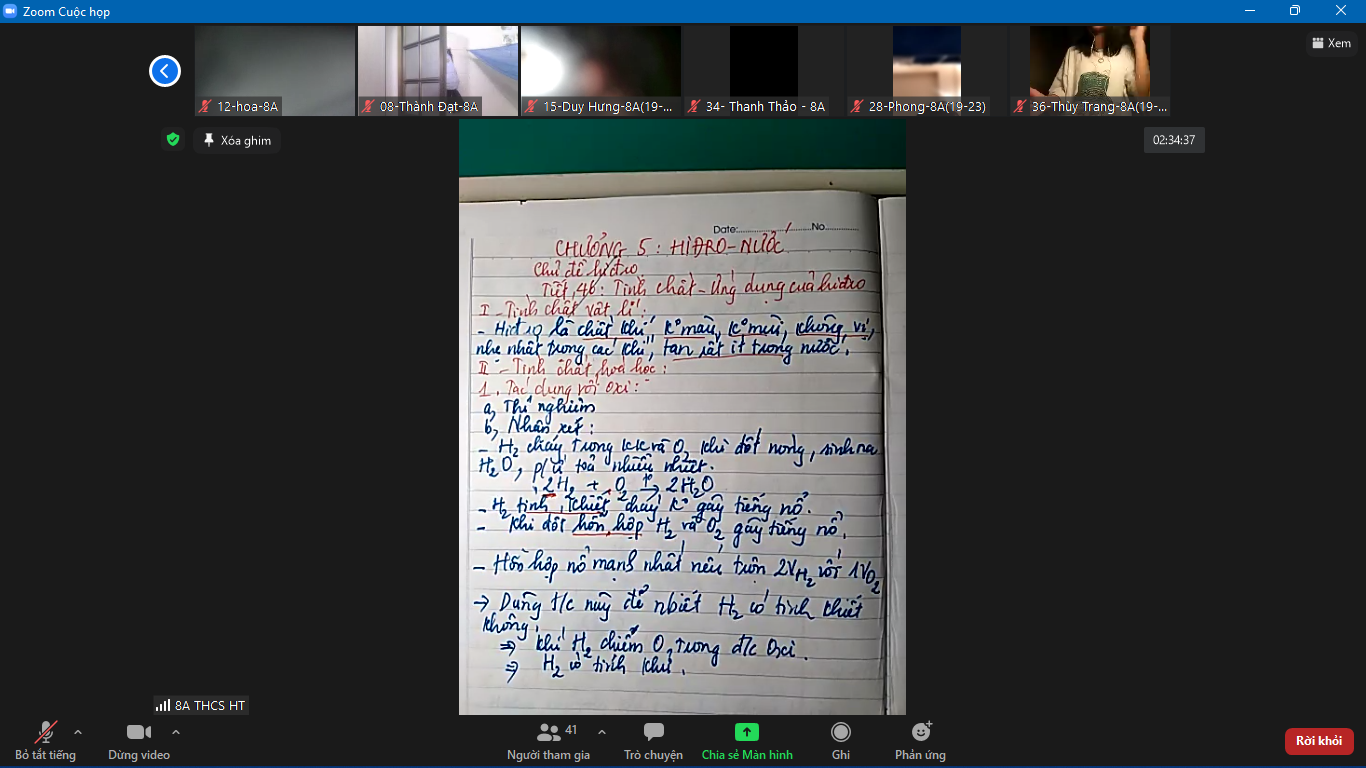 Zoom Cuộc họp
Xem
12-hoa-8A
08-Thành Đạt-8A
15-Duy Hưng-8A(19-...
34- Thanh Thảo - 8A
28-Phong-8A(19-23)
36-Thùy Trang-8A(19-...
Xóa ghim
02:34:37
Date:............../.......No.............
CHƯƠNG 5 : HIĐRO-NƯỚC
Chủ đề hiđro
Tiết 46 : Tính chất - Ứng dụng của hiđro
I - Tính chất vật lí :
- Hiđro là chất khí, K° màu, K° mùi, không vị,
nhẹ nhất trong các khí, tan rất ít trong nước.
II - Tính chất hoá học :
1. Tác dụng với Oxi :
a, Thí nghiệm
b, Nhận xét :
- H₂ cháy trong KK và O₂ khi đốt nóng, sinh ra
H₂O, p/ứ toả nhiều nhiệt.
2H₂ + O₂ t° → 2H₂O
- H₂ tinh khiết cháy K° gây tiếng nổ.
- Khi đốt hỗn hợp H₂ và O₂ gây tiếng nổ.
- Hỗn hợp nổ mạnh nhất nếu trộn 2V H₂ với 1V O₂
→ Dùng t/c này để nbiết H₂ có tinh khiết
không.
⇒ khí H₂ chiếm O₂ trong đ/c Oxi.
⇒ H₂ có tính khử.
8A THCS HT
Bỏ tắt tiếng
Dừng video
41
Người tham gia
Trò chuyện
Chia sẻ Màn hình
Ghi
Phản ứng
Rời khỏi